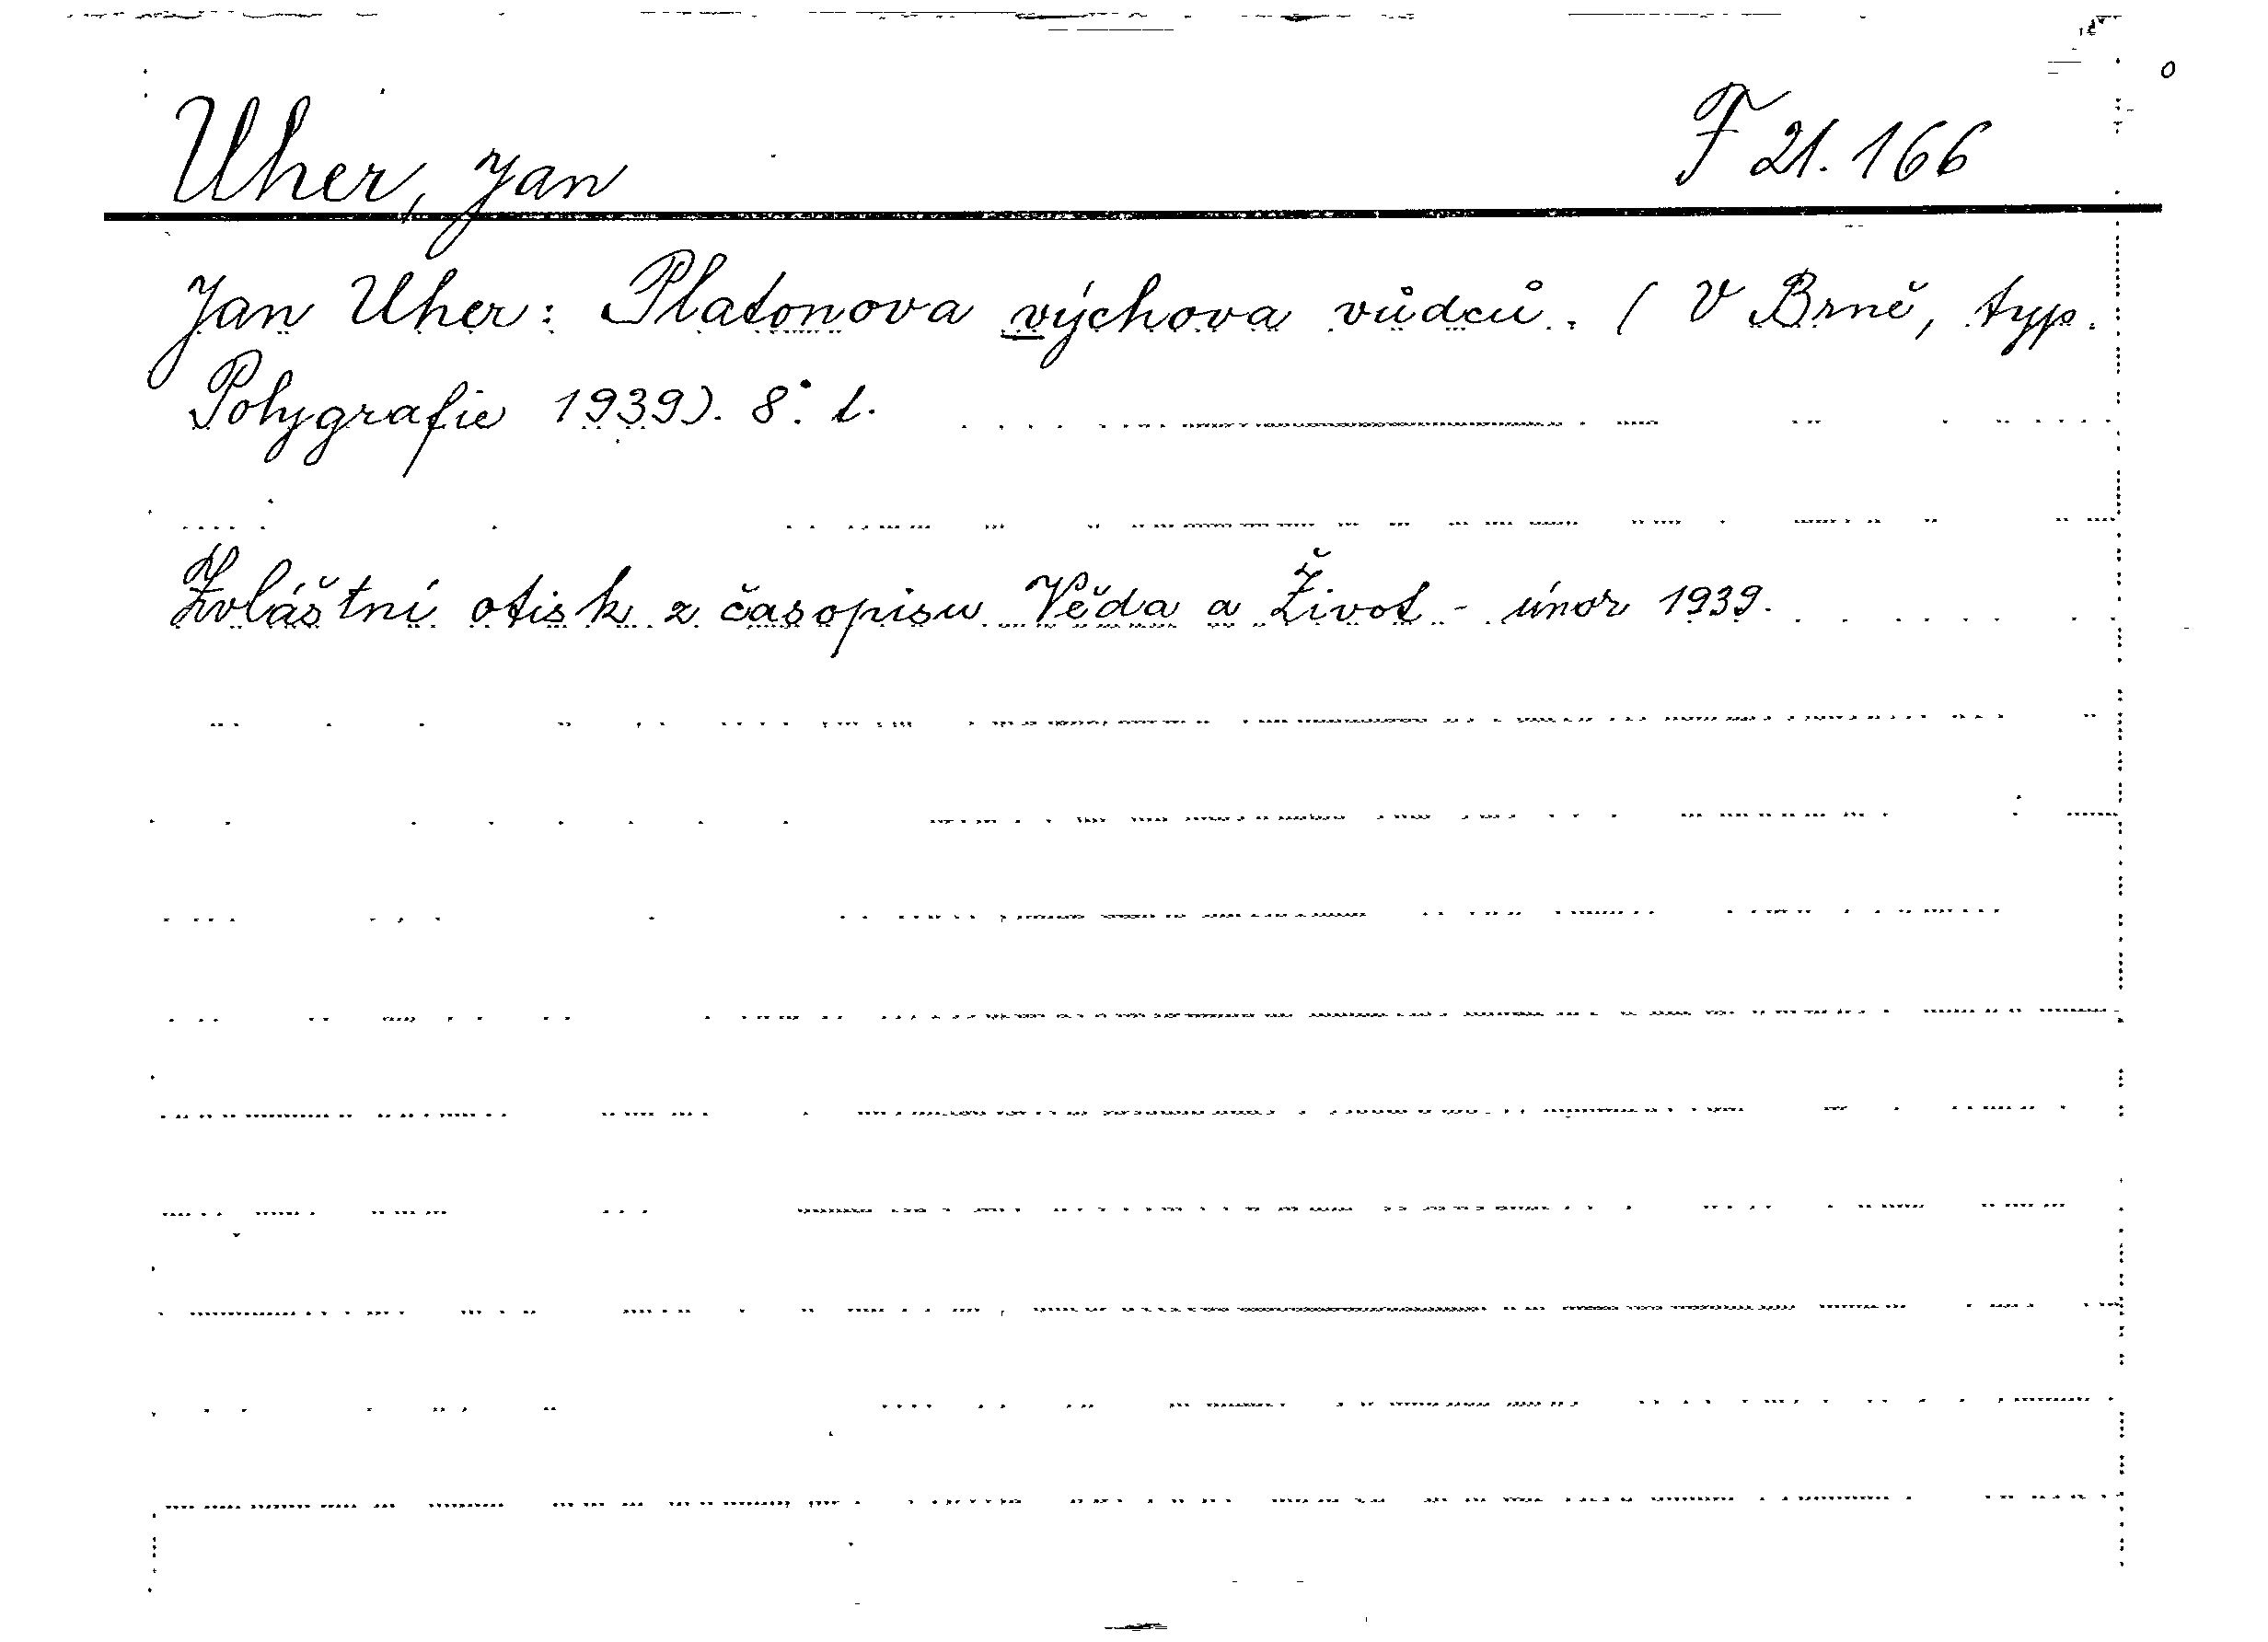 Uher, Jan F 21.166
Jan Uher: Platonova výchova vůdců. (V Brně, typ.
Polygrafie 1939). 8°. l.
Zvláštní otisk z časopisu Věda a Život - únor 1939.